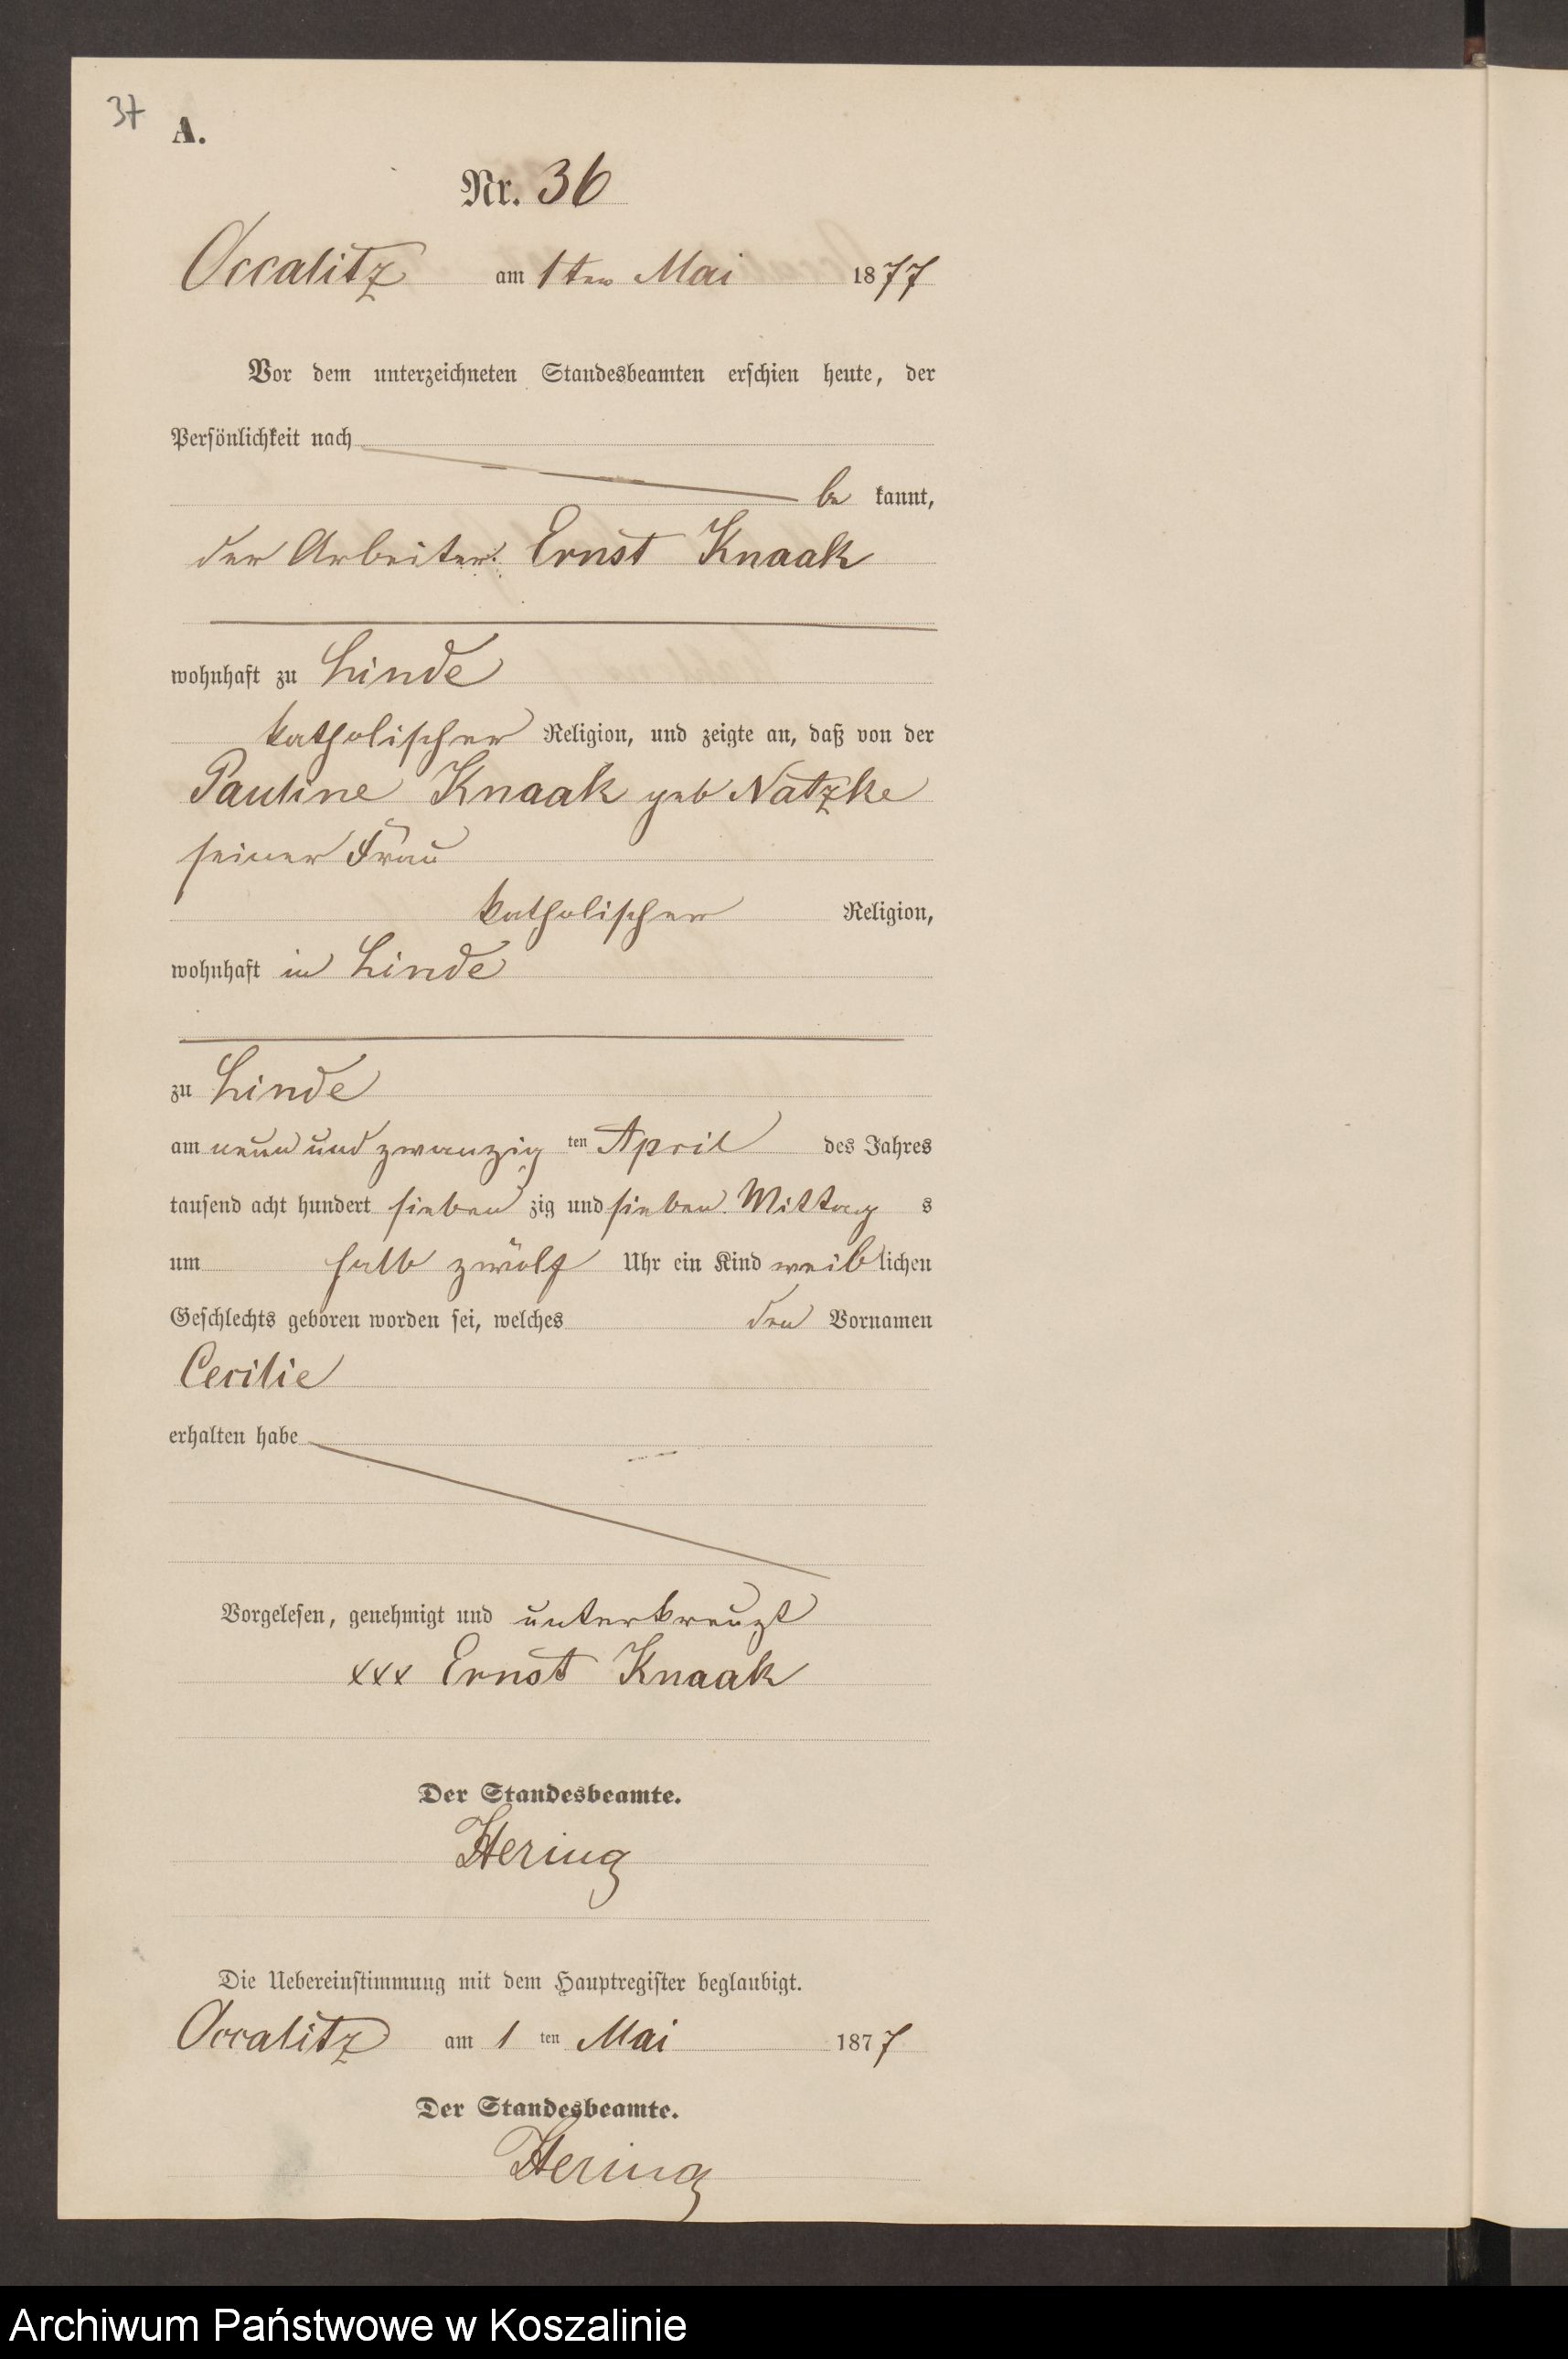 37
A.
Nr. 36
Occalitz am 1ten Mai 1877
Vor dem unterzeichneten Standesbeamten erschien heute, der
Persönlichkeit nach
be kannt,
der Arbeiter Ernst Knaak
wohnhaft zu Linde
katholischer Religion, und zeigte an, daß von der
Pauline Knaak geb Natzke
seiner Frau
katholischer Religion,
wohnhaft in Linde
zu Linde
am neun und zwanzig ten April des Jahres
tausend acht hundert sieben zig und sieben Mittag s
um halb zwölf Uhr ein Kind weiblichen
Geschlechts geboren worden sei, welches den Vornamen
Cecilie
erhalten habe
Vorgelesen, genehmigt und unterkreuzt
xxx Ernst Knaak
Der Standesbeamte.
Hering
Die Uebereinstimmung mit dem Hauptregister beglaubigt.
Occalitz am 1 ten Mai 1877
Der Standesbeamte.
Hering
Archiwum Państwowe w Koszalinie